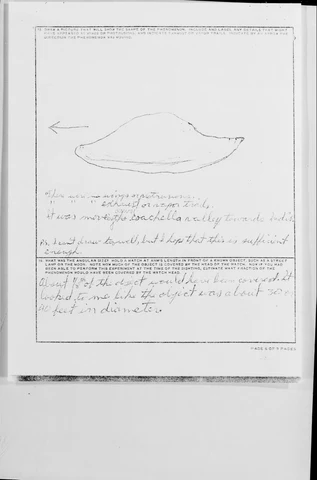 13. DRAW A PICTURE THAT WILL SHOW THE SHAPE OF THE PHENOMENON. INCLUDE AND LABEL ANY DETAILS THAT MIGHT
HAVE APPEARED AS WINGS OR PROTRUSIONS, AND INDICATE EXHAUST OR VAPOR TRAILS. INDICATE BY AN ARROW THE
DIRECTION THE PHENOMENON WAS MOVING.
There were no wings or protrusions.
" " " exhaust or vapor trails.
it was moving to coachella valley towards Indio
Ps, I can't draw to well, but I hope that this is sufficient
enough.
14. WHAT WAS THE ANGULAR SIZE? HOLD A MATCH AT ARM'S LENGTH IN FRONT OF A KNOWN OBJECT, SUCH AS A STREET
LAMP OR THE MOON. NOTE HOW MUCH OF THE OBJECT IS COVERED BY THE HEAD OF THE MATCH. NOW IF YOU HAD
BEEN ABLE TO PERFORM THIS EXPERIMENT AT THE TIME OF THE SIGHTING, ESTIMATE WHAT FRACTION OF THE
PHENOMENON WOULD HAVE BEEN COVERED BY THE MATCH HEAD.
About of the object would have been covered. It
looked to me like the object was about or
feet in diameter.
PAGE 5 OF 9 PAGES